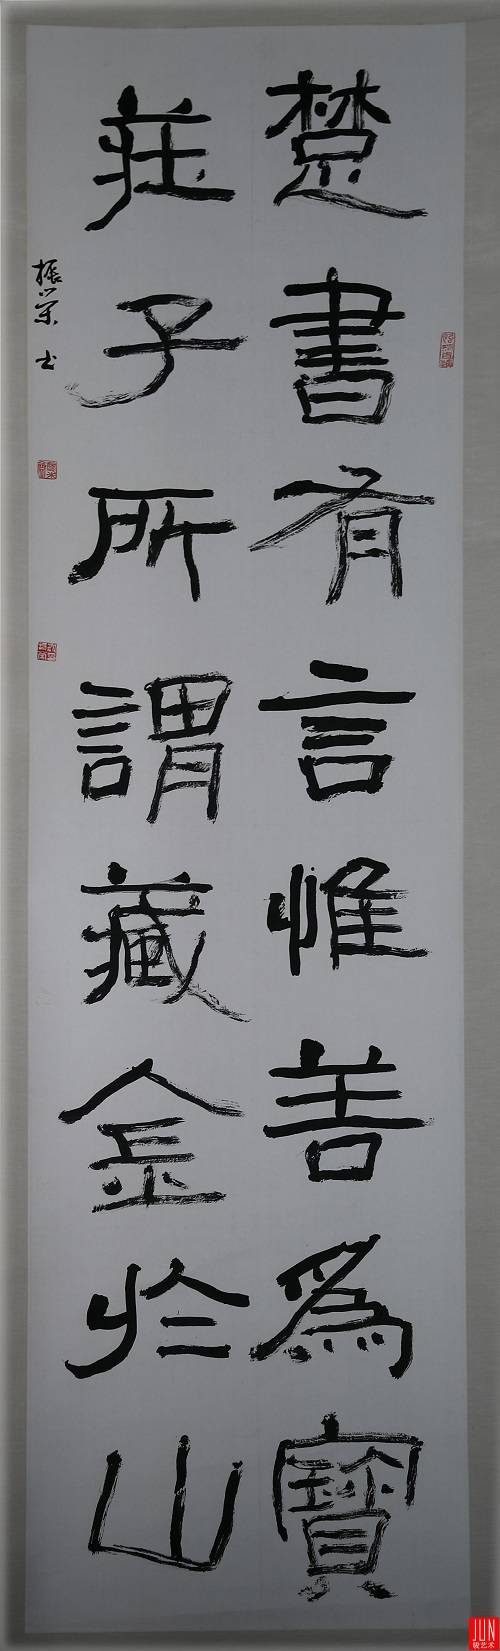 楚書有言惟善為寶
莊子所謂藏金於山
振榮书
JUN
骏艺术